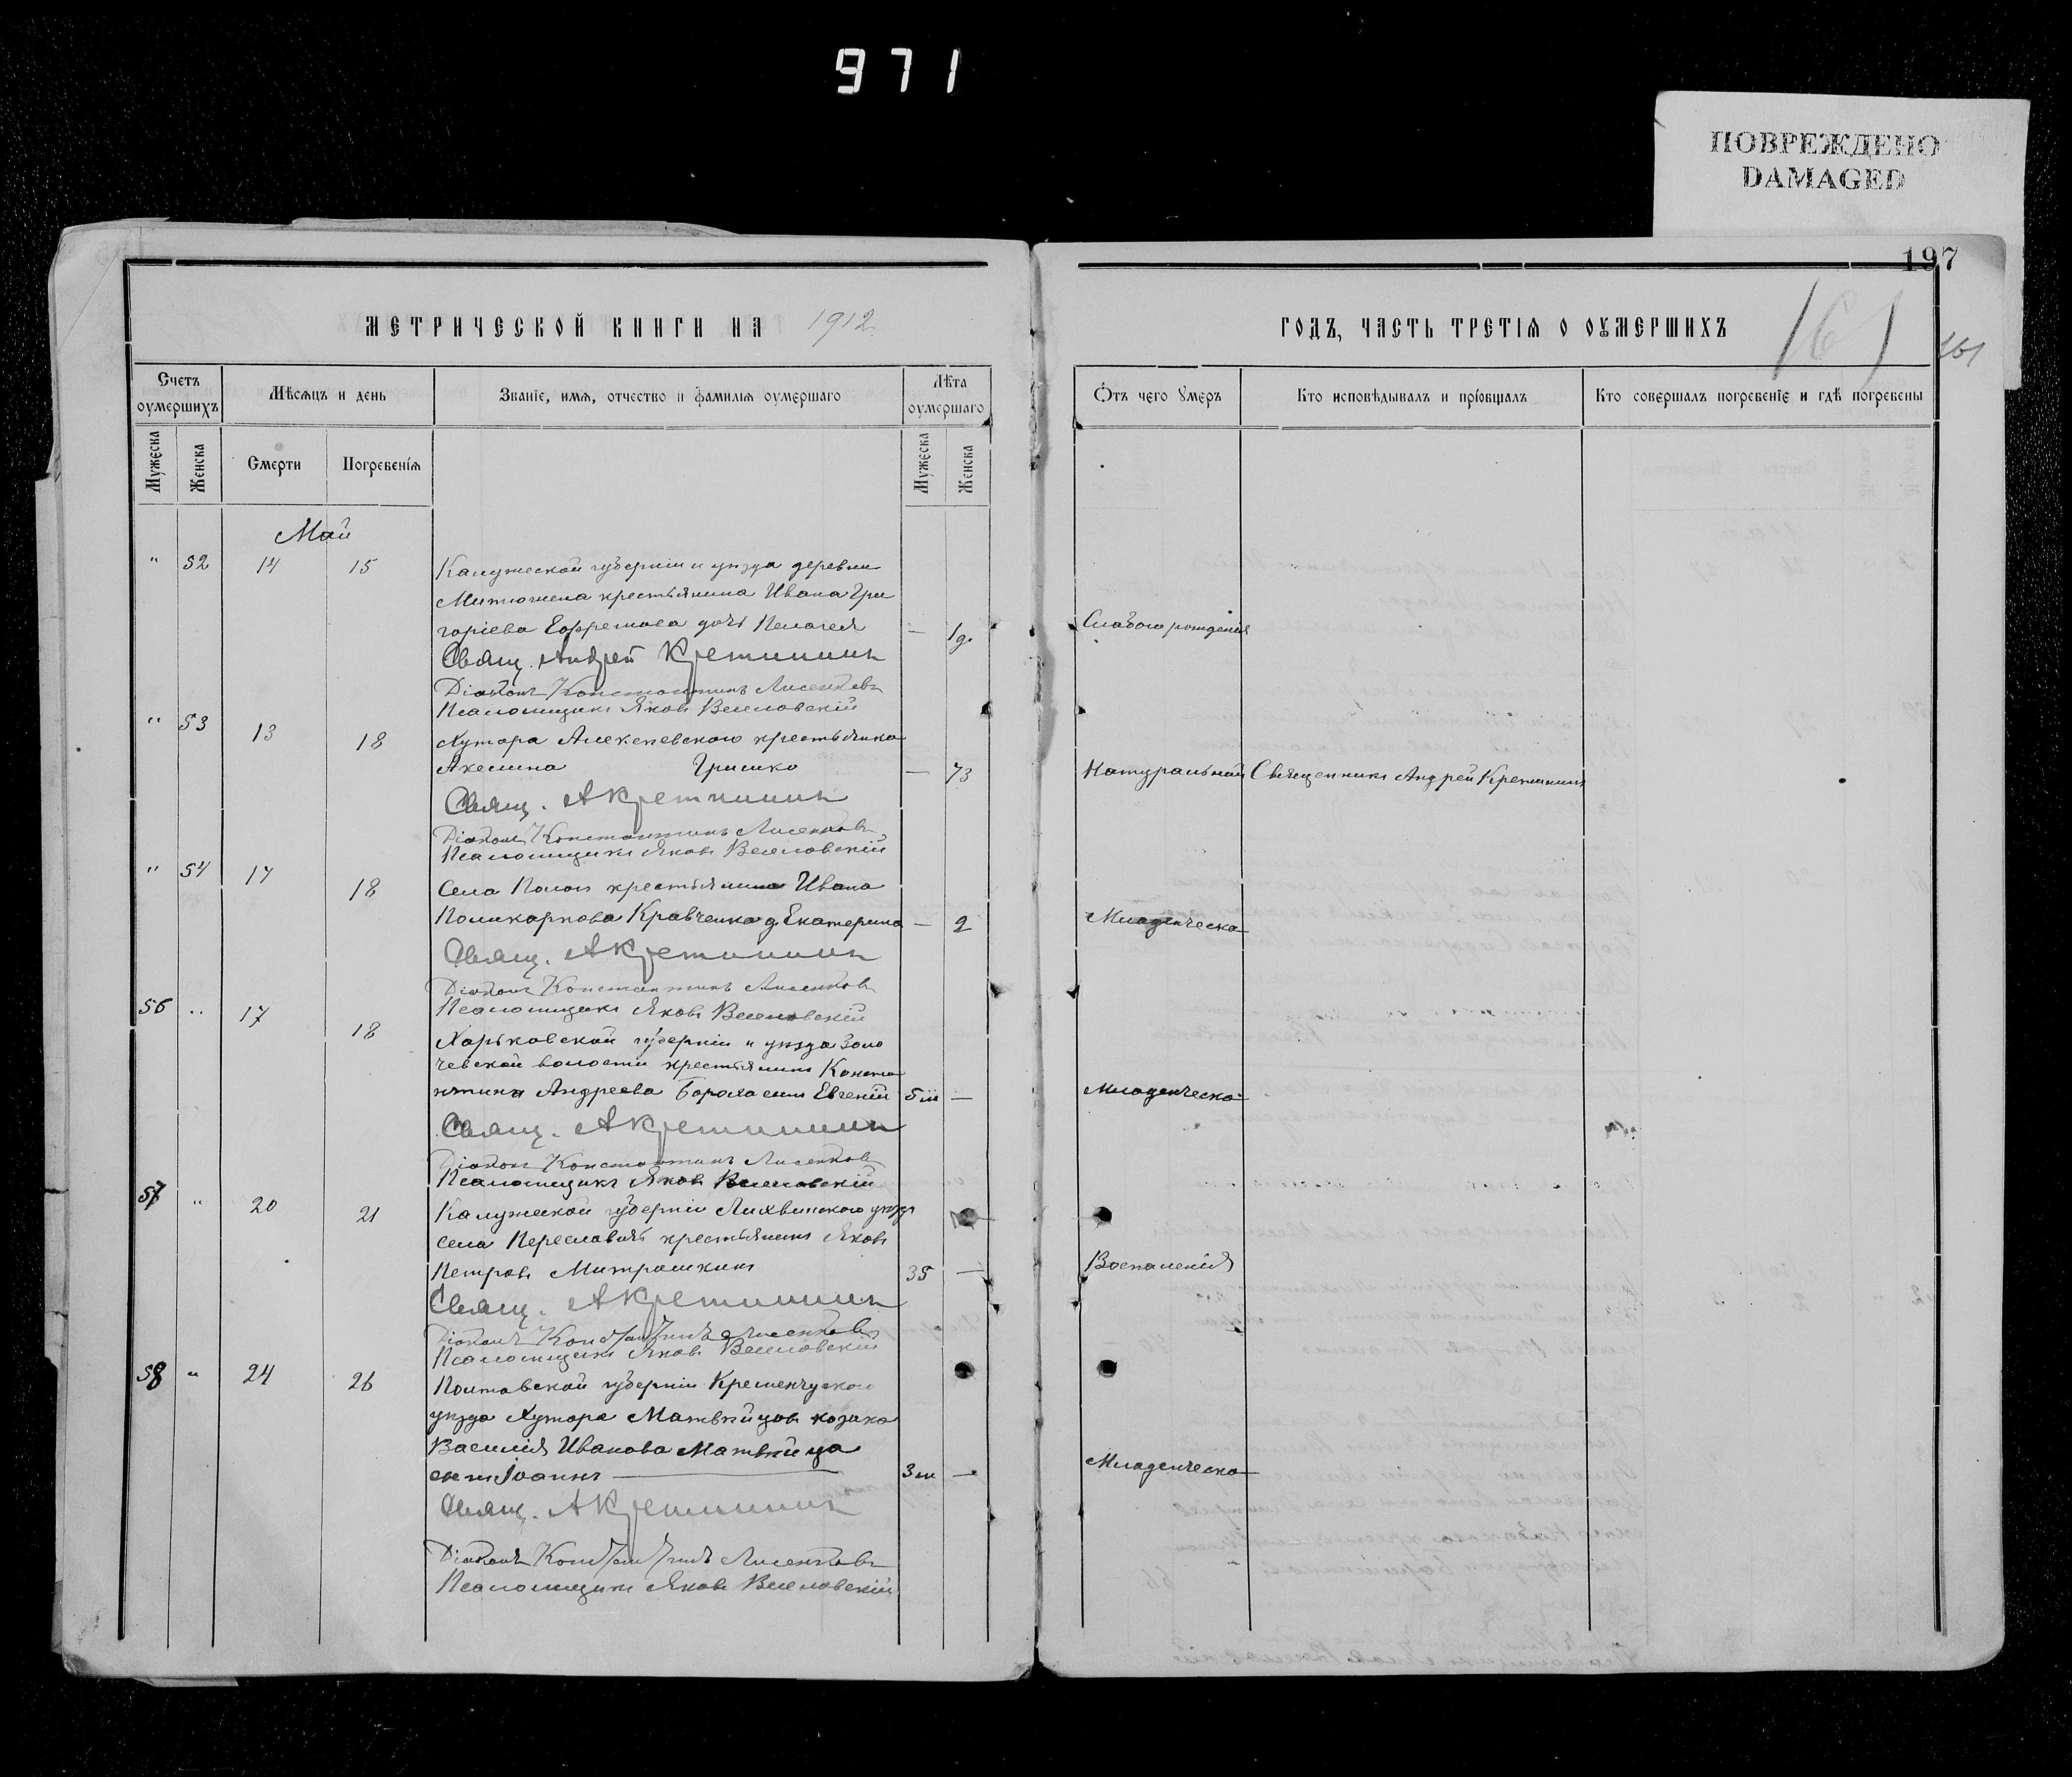 971
ПОВРЕЖДЕНО
DAMAGED
197
161
161
МЕТРИЧЕСКОЙ КНИГИ НА 1912
ГОДЪ, ЧАСТЬ ТРЕТІЯ О ОУМЕРШИХЪ
Счетъ оумершихъ
Мѣсяцъ и день
Званіе, имя, отчество и фамилія оумершаго
Лѣта оумершаго
Отъ чего умеръ
Кто исповѣдывалъ и пріобщалъ
Кто совершалъ погребеніе и гдѣ погребены
Мужеска
Женска
Смерти
Погребенія
Мужеска
Женска
Май
" 52 14 15 Калужеской губерніи и уѣзда деревни
крестьянина Ивана Гри
горіева Ефремова дочь Пелагея — 1 д. Слабого рожденія
Свящ. Андрей Кретининъ
Діаконъ Константинъ Лисенковъ
Псаломщикъ Яковъ Веселовскій
" 53 13 18 Хутора Алексѣевского крестьянка
Акелина Гришко — 73 Натуральной Священникъ Андрей Кретининъ
Свящ. А Кретининъ
Діаконъ Константинъ Лисенковъ
Псаломщикъ Яковъ Веселовскій
" 54 17 18 Села Попои крестьянина Ивана
Поликарпова Кравченко д. Екатерина — 2 Младенческа
Свящ. А Кретининъ
Діаконъ Константинъ Лисенковъ
Псаломщикъ Яковъ Веселовскій
56 " 17 18 Харьковской губерніи и уѣзда Золо
чевской волости крестьянина Конста
нтина Андреева сынъ Евгеній 5 м — Младенческа
Свящ. А Кретининъ
Діаконъ Константинъ Лисенковъ
Псаломщикъ Яковъ Веселовскій
57 " 20 21 Калужской губерніи Лихвинского уѣзда
села Переславичъ крестьянинъ Яковъ
Петровъ Митрошкинъ 35 — Воспаленія
Свящ. А Кретининъ
Діаконъ Константинъ Лисенковъ
Псаломщикъ Яковъ Веселовскій
58 " 24 26 Полтавской губерніи Кременчуского
уѣзда Хутора Матвѣйцовъ козака
Василія Иванова Матвѣйца
сынъ Іоаннъ 3 м — Младенческа
Свящ. А Кретининъ
Діаконъ Константинъ Лисенковъ
Псаломщикъ Яковъ Веселовскій